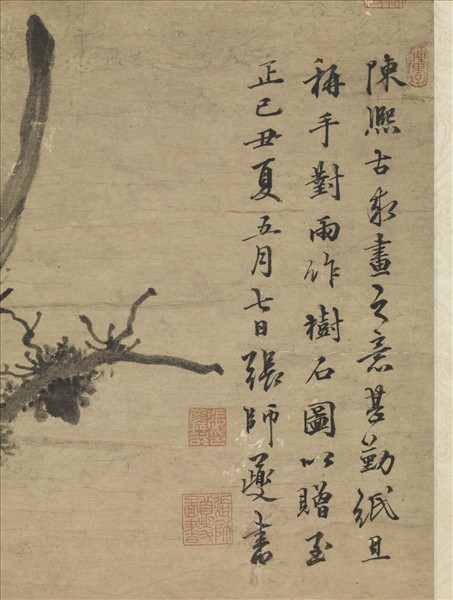 陳凞古求畫之意甚勤紙且
稱手對雨作樹石圖以贈至
正己丑夏五月七日張師夔書